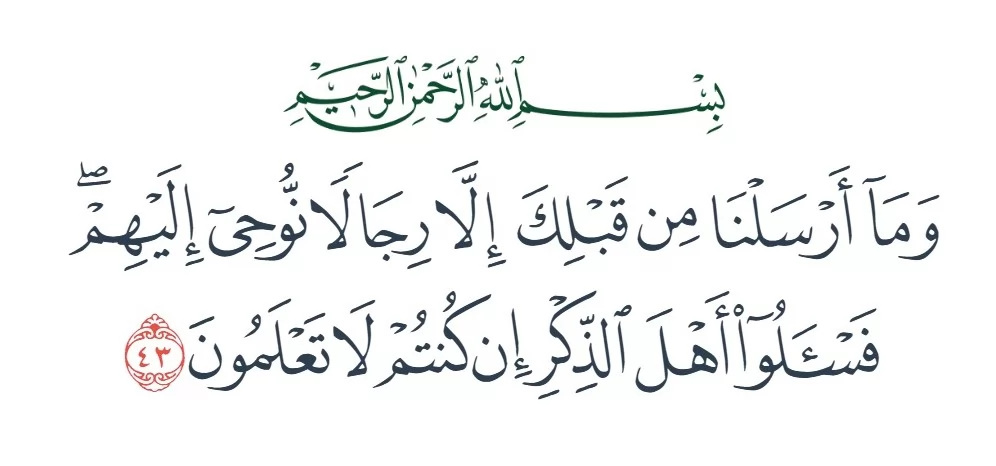 بِسْمِ ٱللَّهِ ٱلرَّحْمَٰنِ ٱلرَّحِيمِ
وَمَآ أَرْسَلْنَا مِن قَبْلِكَ إِلَّا رِجَالًا نُّوحِىٓ إِلَيْهِمْ ۖ
فَسْـَٔلُوٓا۟ أَهْلَ ٱلذِّكْرِ إِن كُنتُمْ لَا تَعْلَمُونَ ٤٣